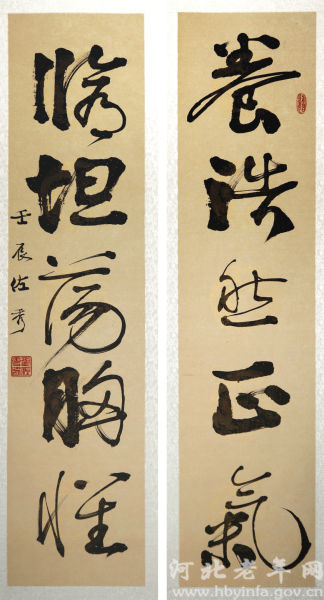 養浩然正氣
脩坦蕩胸懷
壬辰佐秀
河北老年网
www.hbyinfa.gov.cn